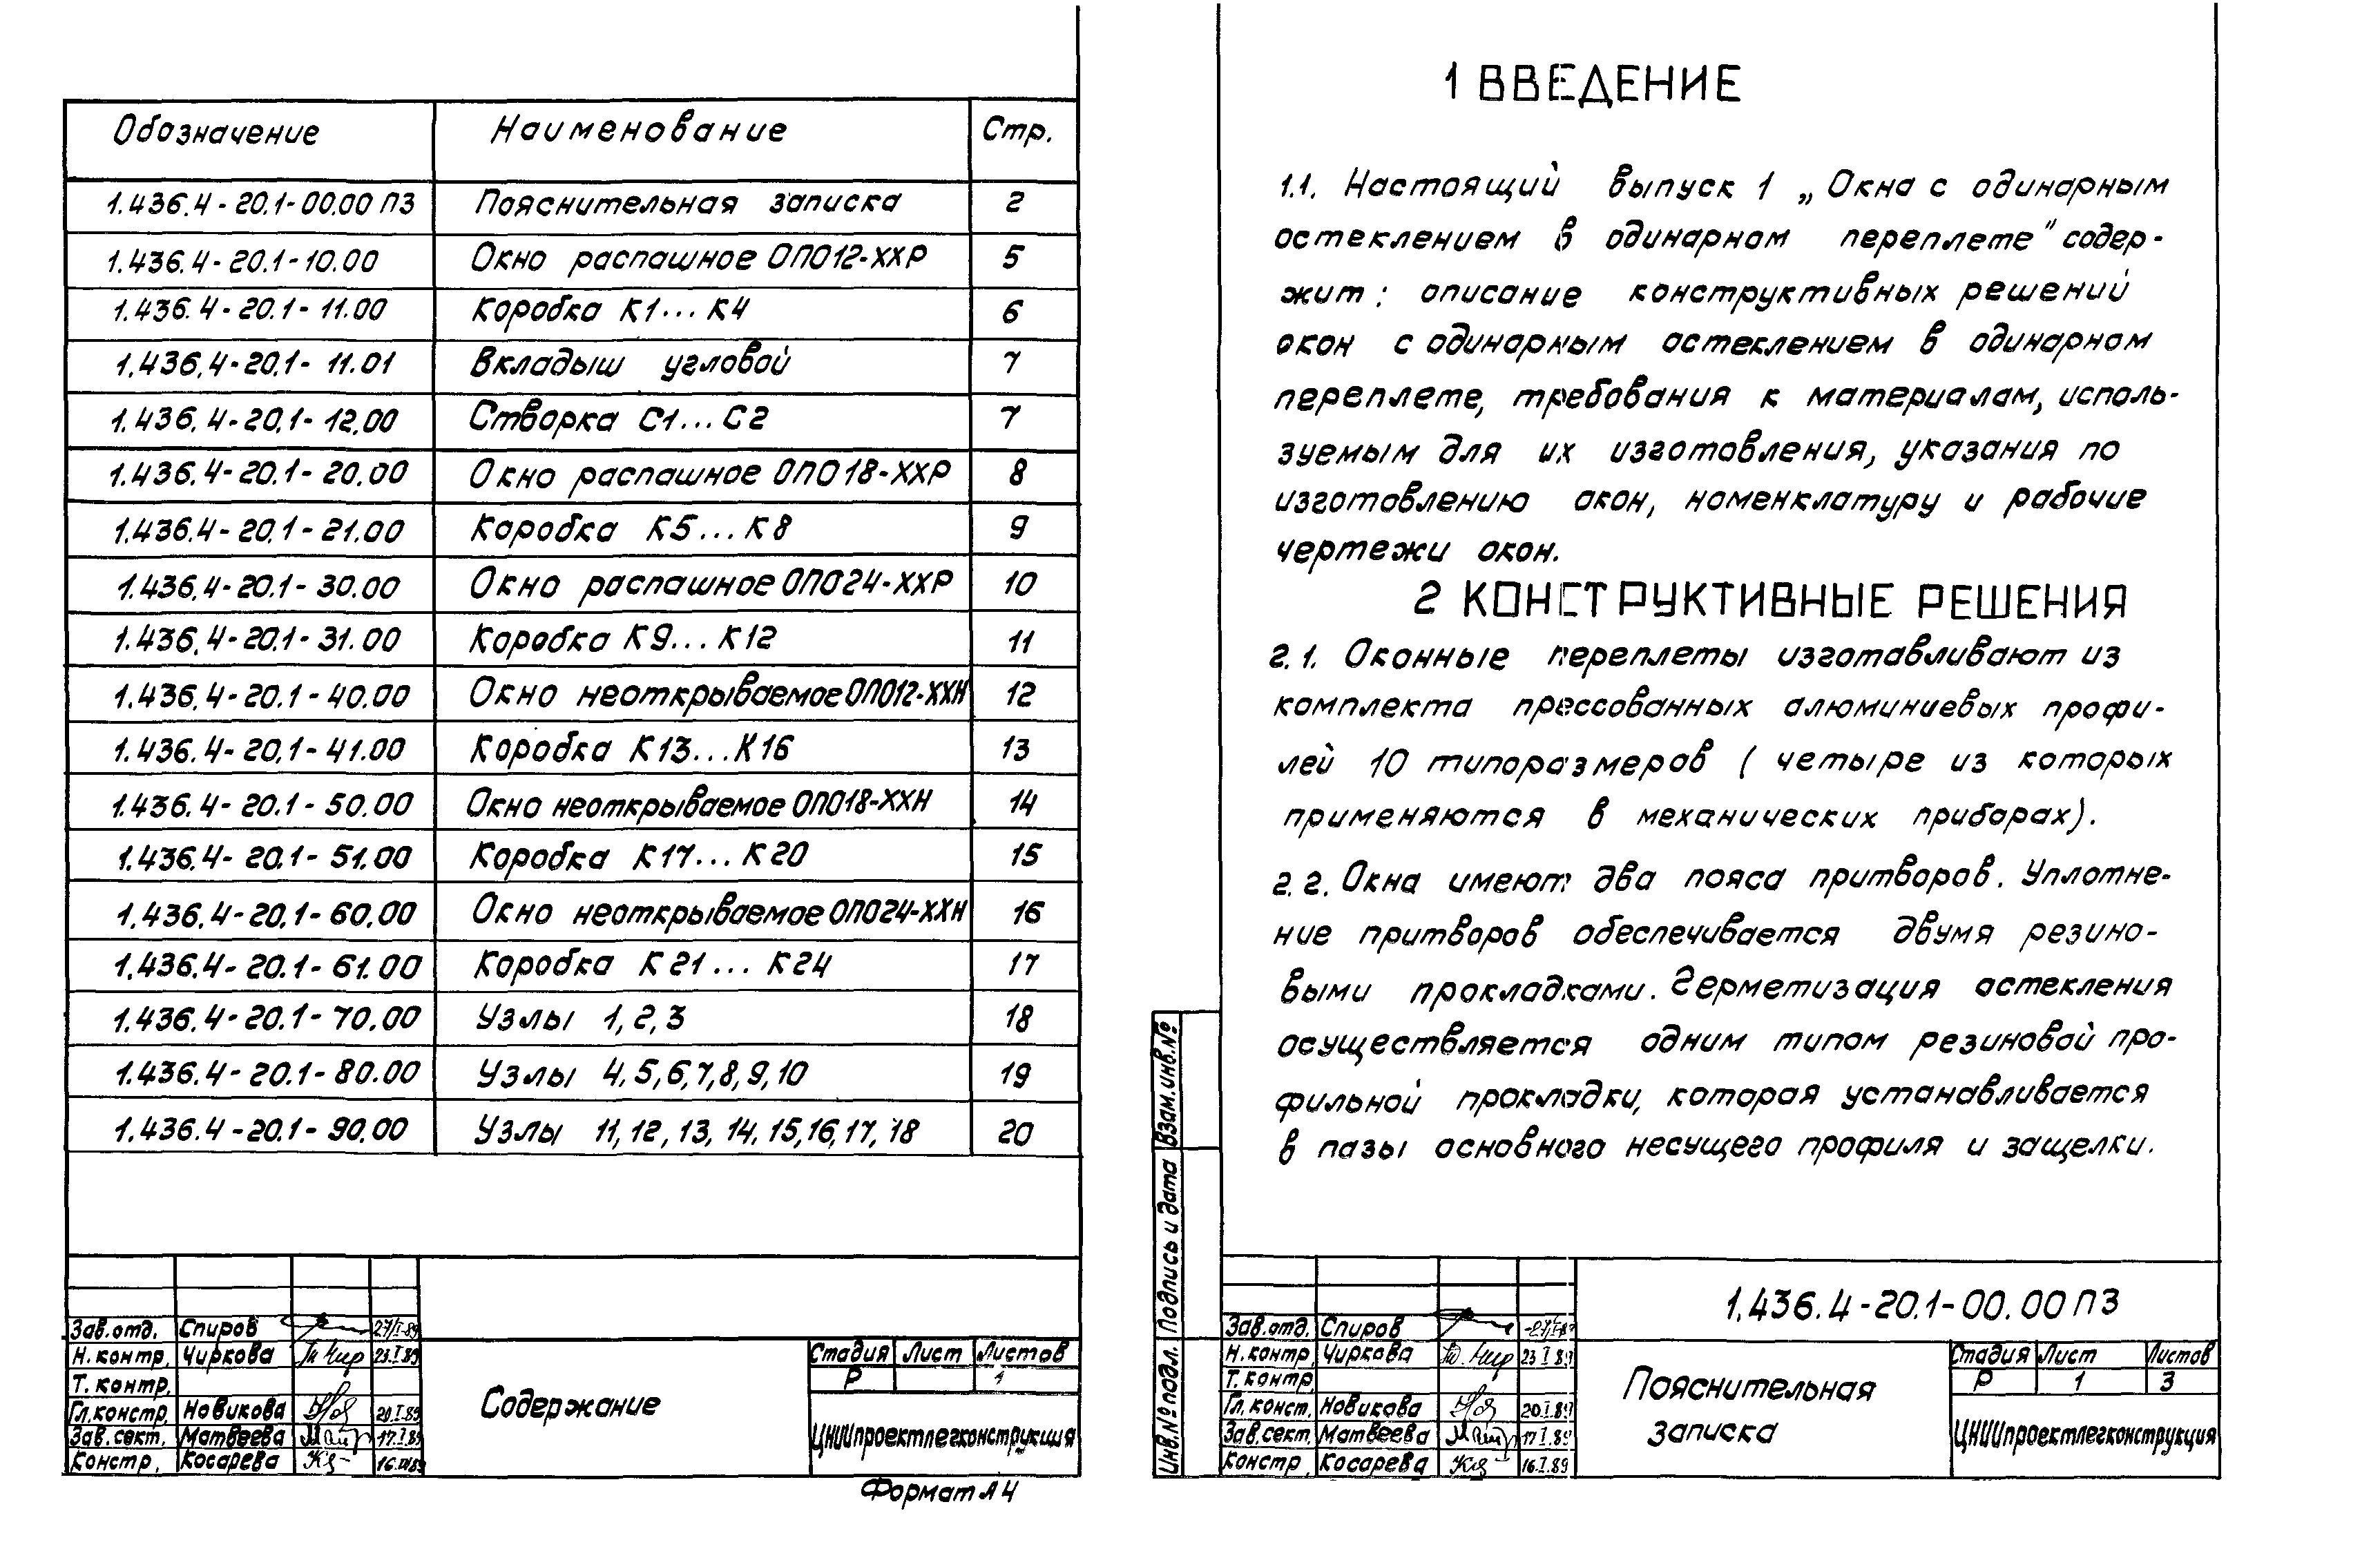 Обозначение Наименование Стр.
1.436.4-20.1-00.00 ПЗ Пояснительная записка 2
1.436.4-20.1-10.00 Окно распашное ОПО12-ХХР 5
1.436.4-20.1-11.00 Коробка К1...К4 6
1.436.4-20.1-11.01 Вкладыш угловой 7
1.436.4-20.1-12.00 Створка С1...С2 7
1.436.4-20.1-20.00 Окно распашное ОПО18-ХХР 8
1.436.4-20.1-21.00 Коробка К5...К8 9
1.436.4-20.1-30.00 Окно распашное ОПО24-ХХР 10
1.436.4-20.1-31.00 Коробка К9...К12 11
1.436.4-20.1-40.00 Окно неоткрываемое ОПО12-ХХН 12
1.436.4-20.1-41.00 Коробка К13...К16 13
1.436.4-20.1-50.00 Окно неоткрываемое ОПО18-ХХН 14
1.436.4-20.1-51.00 Коробка К17...К20 15
1.436.4-20.1-60.00 Окно неоткрываемое ОПО24-ХХН 16
1.436.4-20.1-61.00 Коробка К21...К24 17
1.436.4-20.1-70.00 Узлы 1,2,3 18
1.436.4-20.1-80.00 Узлы 4,5,6,7,8,9,10 19
1.436.4-20.1-90.00 Узлы 11,12,13,14,15,16,17,18 20
Зав.отд. Спиров 27/I-89
Н.контр. Чиркова 23.I.89
Т.контр.
Гл.констр. Новикова 20.I.89
Зав.сект. Матвеева 17.I.89
Констр. Косарева
Содержание
Стадия Лист Листов
Р 1
ЦНИИпроектлегконструкция
Формат А4
1 ВВЕДЕНИЕ
1.1. Настоящий выпуск 1 „Окна с одинарным
остеклением в одинарном переплете" содер-
жит: описание конструктивных решений
окон с одинарным остеклением в одинарном
переплете, требования к материалам, исполь-
зуемым для их изготовления, указания по
изготовлению окон, номенклатуру и рабочие
чертежи окон.
2 КОНСТРУКТИВНЫЕ РЕШЕНИЯ
2.1. Оконные переплеты изготавливают из
комплекта прессованных алюминиевых профи-
лей 10 типоразмеров (четыре из которых
применяются в механических приборах).
2.2. Окна имеют два пояса притворов. Уплотне-
ние притворов обеспечивается двумя резино-
выми прокладками. Герметизация остекления
осуществляется одним типом резиновой про-
фильной прокладки, которая устанавливается
в пазы основного несущего профиля и защелки.
Взам.инв.№
Подпись и дата
Инв.№ подл.
Зав.отд. Спиров
Н.контр. Чиркова 23.I.89
Т.контр.
Гл.конст. Новикова 20.I.89
Зав.сект. Матвеева 17.I.89
Констр. Косарева 16.I.89
1.436.4-20.1-00.00 ПЗ
Пояснительная
записка
Стадия Лист Листов
Р 1 3
ЦНИИпроектлегконструкция